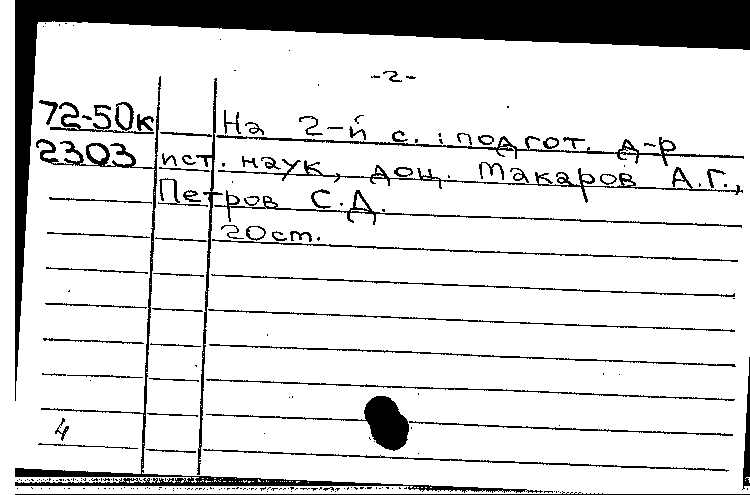 -2-
72-50к На 2-й с.: подгот. д-р
2303 ист. наук, доц. Макаров А.Г.,
Петров С.Д.
20 ст.
4